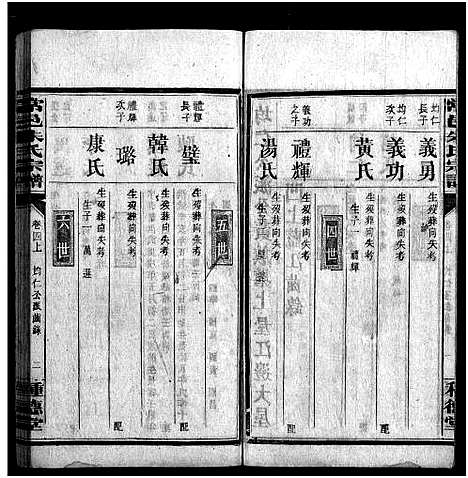 均仁
長子
義勇
生歿葬向失考
均仁
次子
義功
生歿葬向失考
配
黃氏
生歿葬向失考
生子一 禮輝
四世
義功
之子
禮輝
生歿葬向失考
配
湯氏
生歿葬向失考
生子二
五世
禮輝
長子
璧
生歿葬向失考
配
韓氏
生歿葬向失考
禮輝
次子
璐
生歿葬向失考
配
康氏
生歿葬向失考
生子一 萬
六世
朱氏宗譜
卷四上
均仁公
二
種德堂